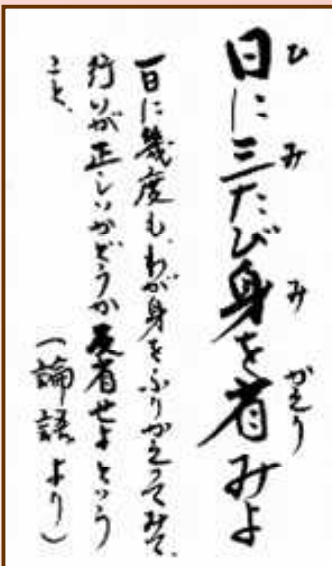 日に三たび身を省みよ
ひ み み かえり
一日に幾度も、わが身をふりかえってみて、
行いが正しいかどうか反省せよという
こと。
（論語より）